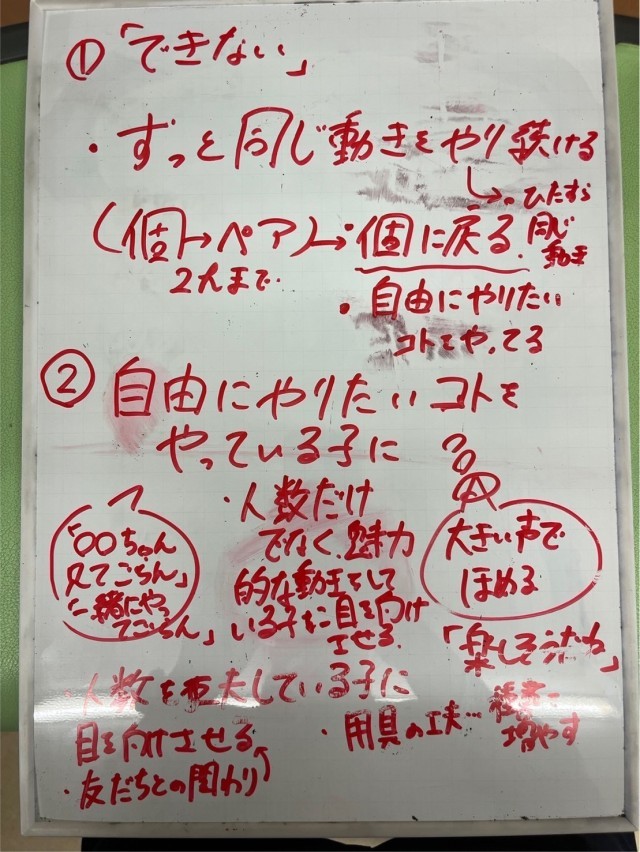 ①「できない」
・ずっと同じ動きをやり続ける
→・ひたすら同じ動き
(個→ペア)→個に戻る.
2人まで.
・自由にやりたい
コトをやってる
②自由にやりたいコトを
やっている子に
・人数だけ
でなく魅力
的な動きをして
いる子に目を向け
させる.
「〇〇ちゃん
見てごらん」
「一緒にやっ
てごらん」
大きい声で
ほめる
「楽しそうだね」
・人数を工夫している子に
目を向けさせる
・友だちとの関わり
・用具の工夫…
増やす